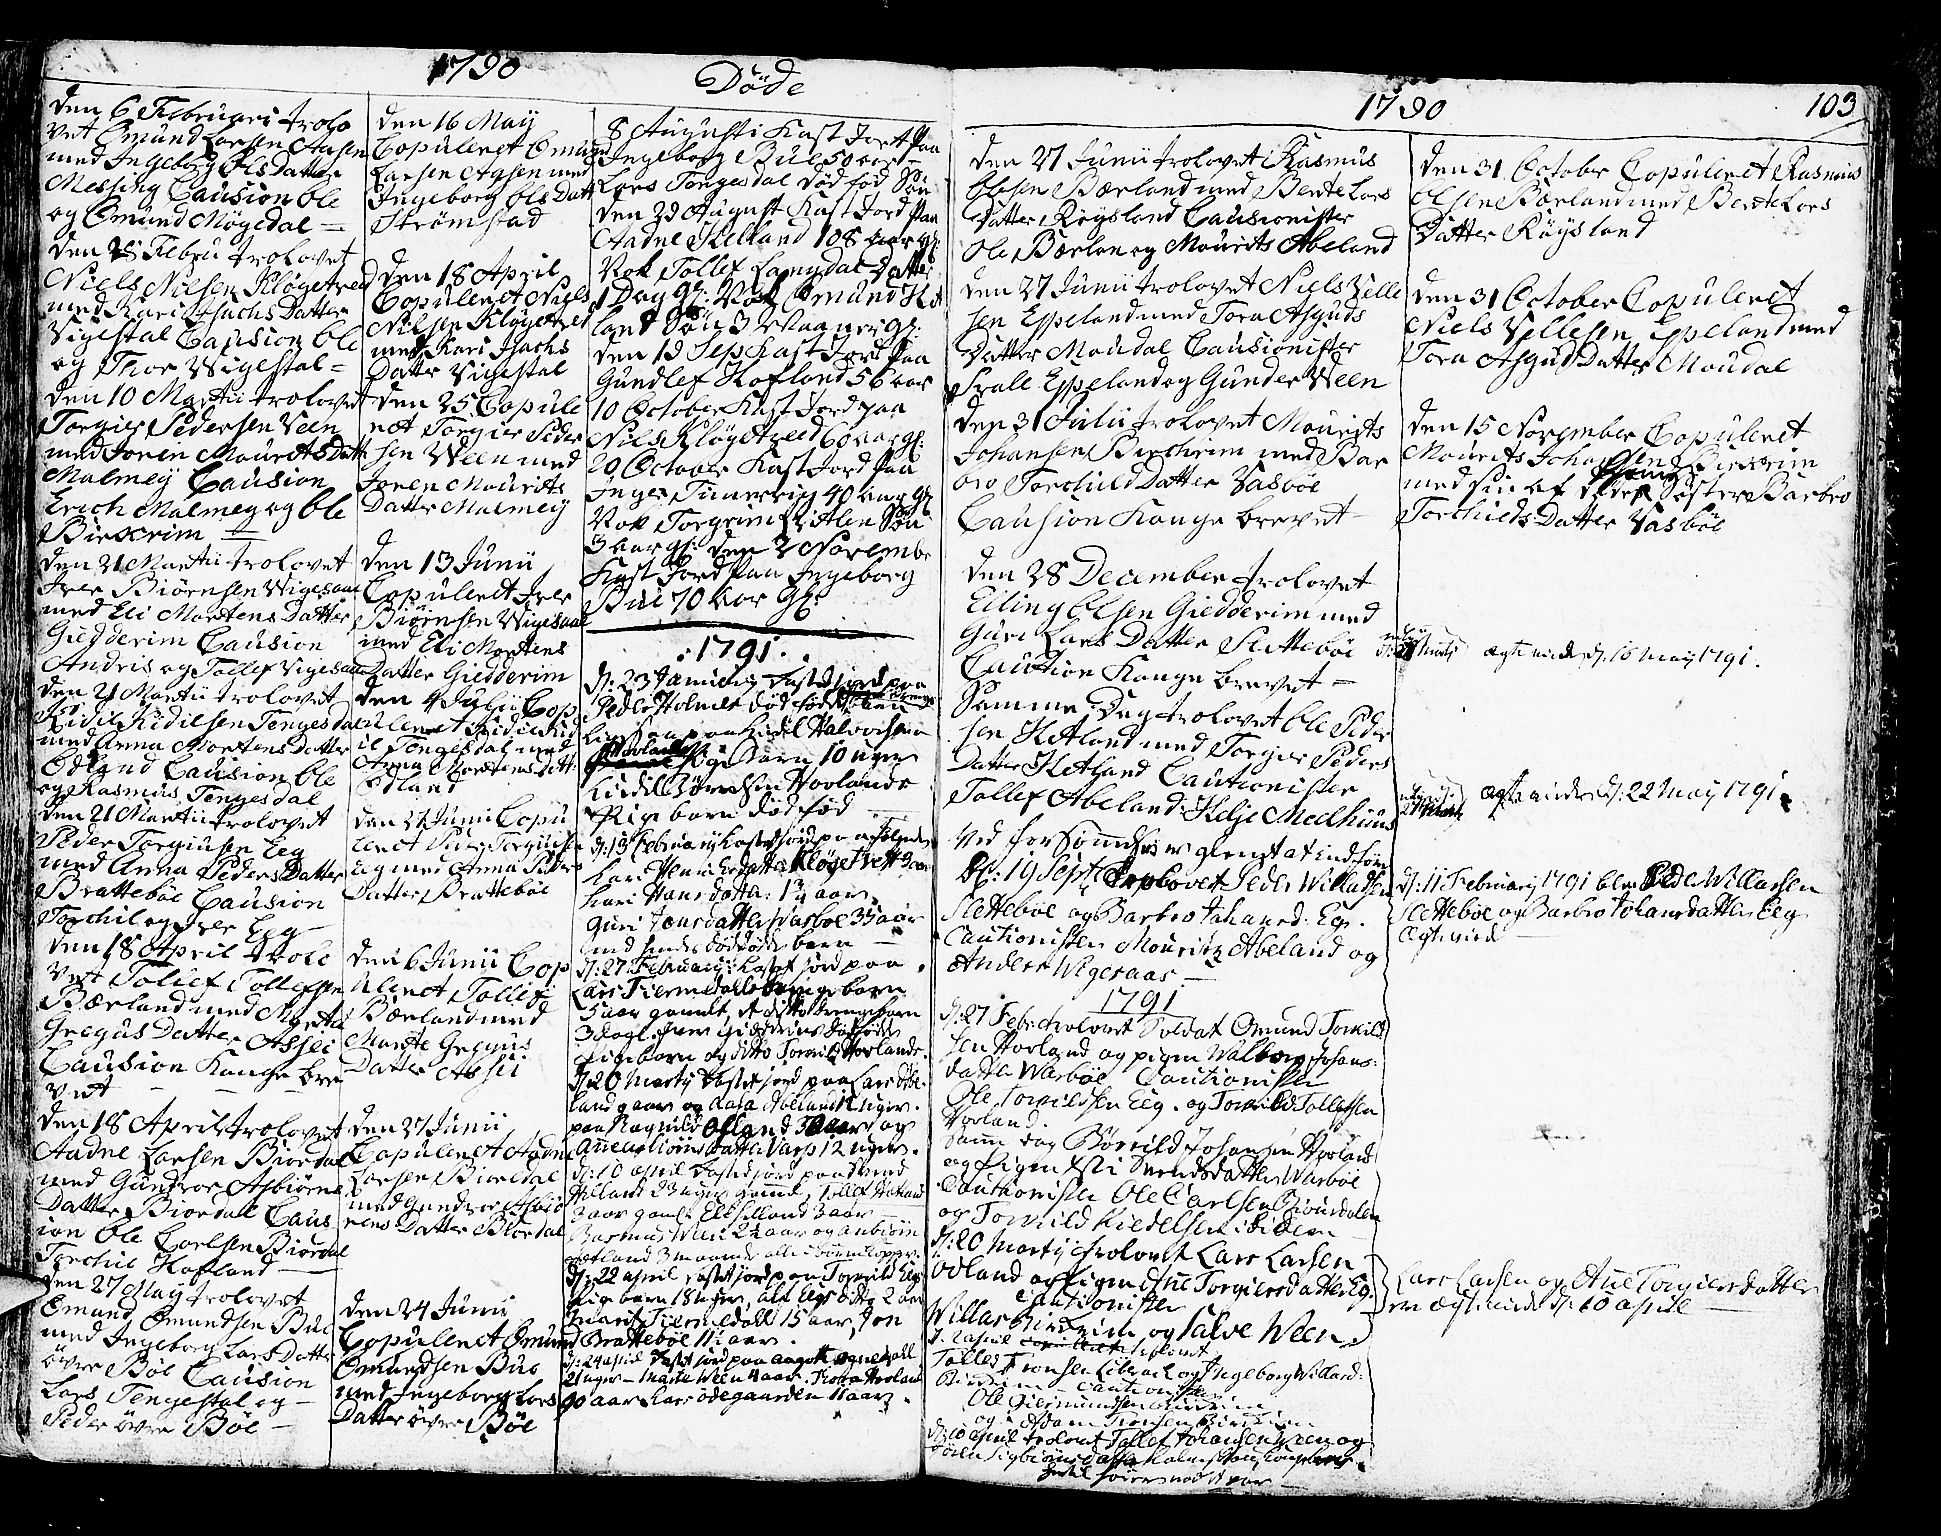 1790
Döde
den 6 Februari trolo
vet Omund Larsen Aasen
med Ingeborg Ols Datter
Messing Causion Ole
og Omund Mögedal
den 28 Febru trolovet
Niels Nielsen Klögetved
med Kari Isachs Datter
Vigestal Causion Ole
og Thor Vigestal
den 10 Martii trolovet
Torgier Pedersen Veen
med Joren Mourits Datt
Malmey Causion
Erich Malmey og Ole
Birkrim
den 21 Martii trolovet
Iver Biörnsen Vigesaa
med Eli Mortens Datter
Giedderim Causion
Andris og Tollef Vigesaa
den 21 Martii trolovet
Kidil Kidilsen Tengesdal
med Anna Mortens Datter
Ödland Causion Ole
og Rasmus Tengesdal
den 21 Martii trolovet
Peder Torgiusen Eeg
med Anna Peders Datter
Brattebøe Causion
Torchil og Iver Eeg
den 18 April trolo
vet Tollef Tollefsen
Bærland med Marta
Gregus Datter Assei
Causion Konge bre
vet
den 18 April trolovet
Aadne Larsen Biordal
med Gundror Asbiörns
Datter Biordal Caus
ion Ole Carlsen Biordal
Torchil Hofland
den 27 May trolovet
Omund Omundsen Bue
med Ingeborg Lars Datter
övre Böe Causion
Lars Tengestal og
Peder övre Böe
den 16 May
Copuleret Omund
Larsen Aasen med
Ingeborg Ols Datt
Strömstad
den 18 April
Copuleret Niels
Nilsen Klögetved
med Kari Isachs
Datter Vigestal
den 25 Copule
ret Torgier Peder
sen Veen med
Joren Mourits
Datter Malmey
den 13 Junii
Copuleret Iver
Biörnsen Vigesaa
med Eli Mortens
Datter Giedderim
den 4 Julii Cop
uleret Kidil Kid
il Tengesdal med
Anna Mortens Datt
Ödland
den 27 Junii Copu
leret Peder Torgiusen
Eeg med Anna Peders
Datter Brattebøe
den 6 Junii Cop
uleret Tollef
Bærland med
Marte Gregus
Datter Assei
den 27 Junii
Copuleret Aadne
Larsen Biordal
med Gundror Asbiö
rens Datter Biordal
den 24 Junii
Copuleret Omund
Omundsen Bue
med Ingeborg Lars
Datter övre Böe
8 Augusti Kast Jord Paa
Ingeborg Bue 50 aar
Lars Tengesdal död föd Sön
den 29 August Kast Jord Paa
Aadne Helland 108 aar gl:
Nok Tollef Langdal Datter
1 Dag gl: Nok Omund Het
land Sön 3 Maaner gl:
den 19 Sep Kast Jord Paa
Gundlef Hofland 56 aar
10 October Kast Jord paa
Niels Klögetveed 60 aar gl:
20 October Kast Jord Paa
Inger 40 aar gl
Nok Torgrim Sön
3 aar gl: den 2 Novembe
Kast Jord Paa Ingeborg
Bue 70 aar gl:
1791
d: 23 Januarij Kasted jord paa
Peder Holmes död föd
Kiedel Halvorsen
Pige Barn 10 uger
Kiedel Hovlands
Pige barn död föd
d: 13 Februarij Kasted jord paa
Kari Klögetvett 3 aar
Kari Hansdatter 13 aar
Guri Joursdatter Vasboe 35 aar
med sinde dödfödte barn
d: 27 Februarij Kasted jord paa
Lars Tiermedalls Drengebarn
5 aar gamelt, et ditto drengebarn
3 dage. Iver Giedderims dödfödt
Pige barn og ditto Torkild Hovlands
d: 20 Martij Kasted jord paa Lars Abe-
land aar og Lara Abeland 12 uger.
paa Ragnild Ofland 30 aar og
datter Varp 12 uger.
d: 10 April Kasted jord paa Svend
Helland 23 uger gammel, Tollef Hetland
3 aar gaml: Eli Helland 3 aar
Rasmus Veen 2½ aar og
Hetland 3 maaneder alle i börnekopper
d: 22 april Kasted jord paa Torkild Eegs
Pige barn 18 uger, Ole Eegs ditto 2 aar
Marit Tiermedall 15 aar, Jon
Brattebøe 11 aar.
d: 24 april Kasted jord paa
21 uger - Marte Ween 4 aar. Hovland
90 aar. Lars ödegaarden 11 aar.
1790
103
den 27 Junii trolovet Rasmus
Olsen Bærland med Berte Lars
Datter Röysland Causionister
Ole Bærlan og Mourits Abeland
den 27 Junii trolovet Niels Ville
sen Espeland med Tora Asguds
Datter Moudal Causionister
Sralle Espeland og Gunder Veen
den 31 Julii trolovet Mourits
Johansen Birchrim med Bar
bro Torchild Datter Vasböe
Causion Konge brevet
den 28 December trolovet
Elling Olsen Giedderim med
Guri Lars Datter Slettebøe
Caution Konge brevet
Samme Dag trolovet Ole Peder
sen Hetland med Torgier Peders
Datter Hetland Cautionister
Tollef Abeland Helje Medhuus
Ved forsömmelse er glemt at indföre
d: 19 Sept Trolovet Peder Willadsen
Slettebøe og Barbro Johansd: Eeg.
Cautionister Mouritz Abeland og
Anders Wigesaae
1791
d: 27 Febr: trolovet Soldat Omund Torkild
sen Hovland og pigen Walborg Johans:
datter Warböe Cautionister
Ole Torkildsen Eeg. og Torkild Tollefsen
Hovland.
Samme dag Börrild Johansen Hovland
og Pigen Svendsdatter Warböe
Cautionister Ole Carlsen Biordalen
og Torkild Kiedelsen ibidem
d: 20 Martij trolovet Lars Larsen
Ödland og Pigen Ane Torgiersdatter Eeg.
Cautionister
Willas Birkrim og Salve Ween.
d. 2 april trolovet
Tolles Tronsen Liberad og Ingeborg Willard:
Birkrim - Cautionister
Ole Giermundsen Birkrim
og Adam Tronsen Birkrim
d: 10 april trolovet Tollef Johansen Ween og
den 31 October Copuleret Rasmus
Olsen Bærland med Berte Lars
Datter Röysland
den 31 October Copuleret
Niels Villesen Espeland med
Tora Asgud Datter Moudal
den 15 November Copuleret
Mourits Johansen Birkrim
med sin afdöde Söster Barbro
Torchilds Datter Vasböe
ægteviede d: 16 May 1791.
ægteviede d: 22 May 1791
d: 11 Februarij 1791 blev Peder Willarsen
Slettebøe og Barbro Johansdatter Eeg
Ægteviet
Lars Larsen og Ane Torgiersdatter
er ægteviede d: 10 april